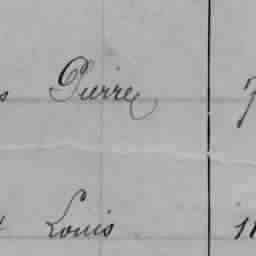 s Pierre 7
t Louis 11